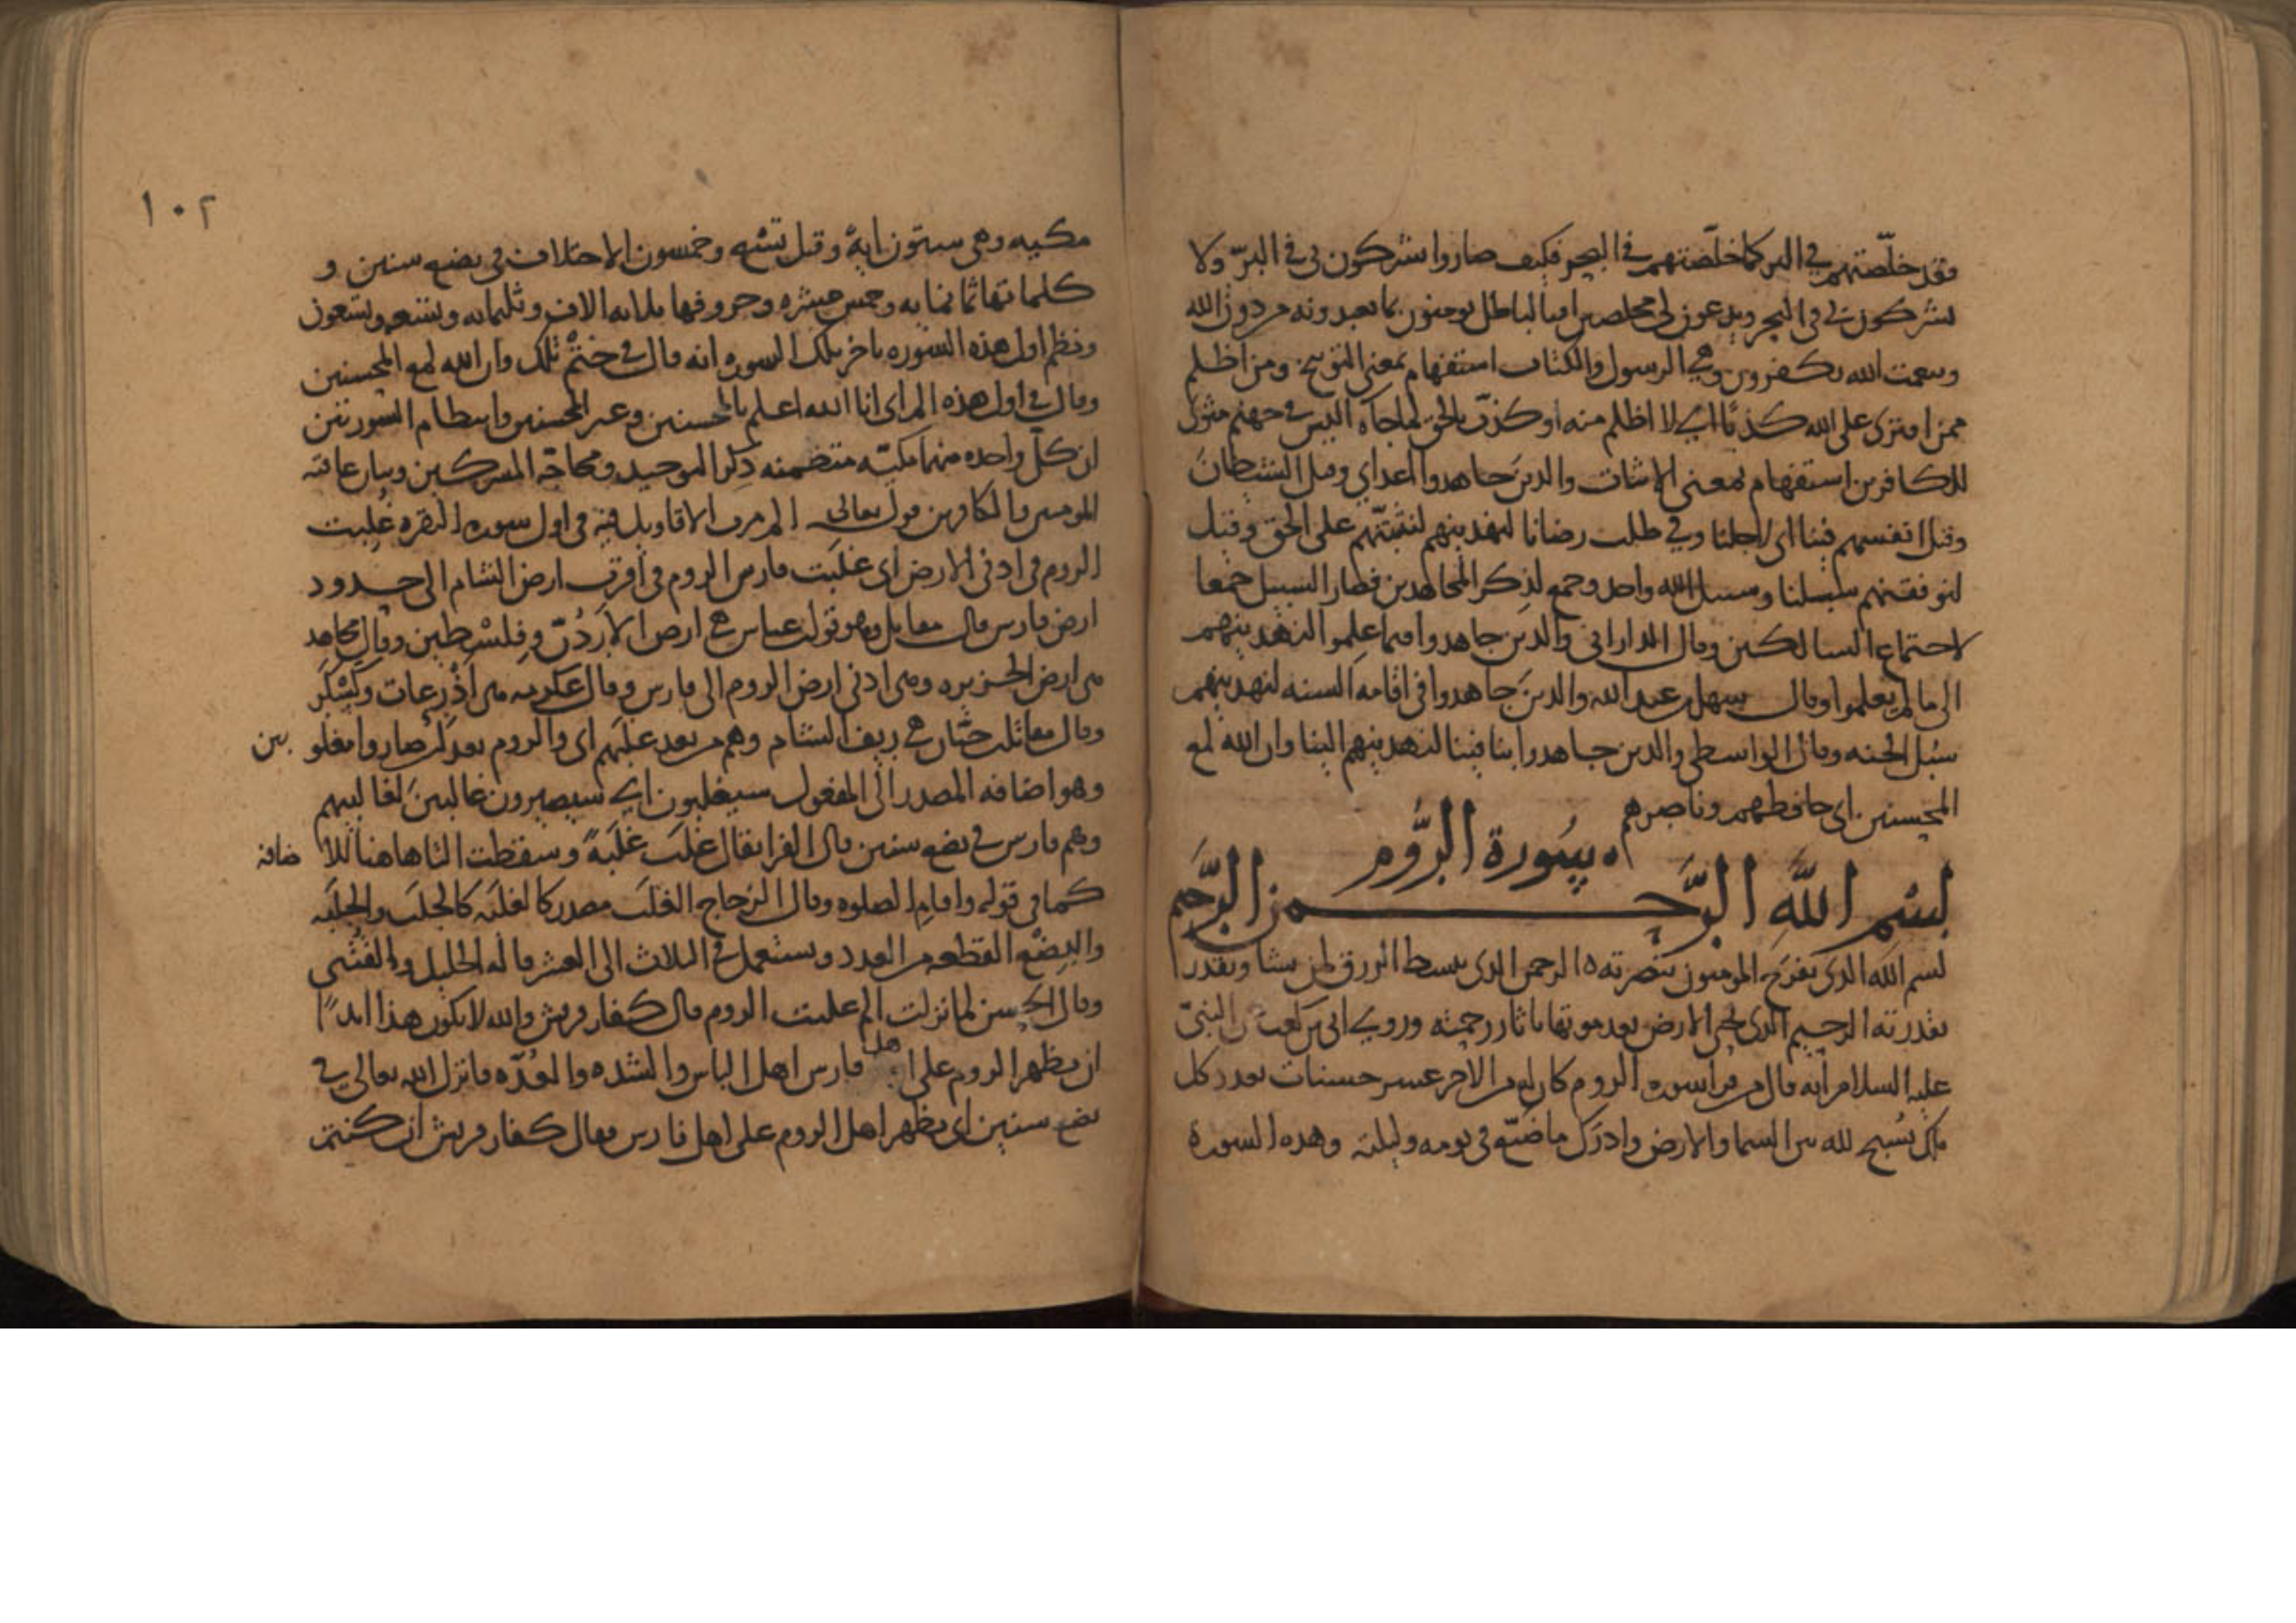 وقد خلّصتهم في البر كما خلّصتهم في البحر فكيف صاروا يشركون بي في البرّ ولا
يشركون بي في البحر ويدعون لي مخلصين افبالباطل يومنون بما يعبدونه من دون الله
وبنعمت الله يكفرون وهي الرسول والكتاب استفهام بمعنى التوبيخ ومن اظلم
ممن افترى على الله كذبًا اي لا اظلم منه او كذّب بالحق لما جآه اليس في جهنم مثوى
للكافرين استفهام بمعنى الاثبات والدين جاهدوا اعداي وقيل الشيطان
وقيل انفسهم فينا اى لاجلنا وفي طلب رضانا لنهدينهم لنثبتنّهم على الحق وقيل
لنوفقنهم سبلنا وسبيل الله واحد وجمع لذكر المجاهدين فصار السبيل جمعا
لاجتماع السالكين وقال الداراني والدين جاهدوا فيما علموا لنهدينهم
الى ما لم يعلموا وقال سهل بن عبد الله والدين جاهدوا في اقامه السنه لنهدينهم
سبُل الجنه وقال الواسطي والدين جاهدوا بنا فينا لنهدينهم الينا وان الله لمع
المحسنين اى حافظهم وناصرهم
سُورة الرُّوم
بسْم اللَّهِ الرَّحمن الرَّحيم
بسم الله الدى يفرح المومنون بنصرته ه الرحمن الدى يبسط الرزق لمن يشا ويقدر
بقدرته الرحيم الدى يحيى الارض بعد موتها باثار رحمته وروي ابى بن كعب عن النبىّ
عليه السلام انه قال من قرا سوره الروم كان له من الاجر عشر حسنات بعدد كل
ملك يُسبح لله بين السما والارض وادرَك ما ضيّع في يومه وليلته وهذه السورة
١٠٢
مكيه وهى ستون ايةً وقيل تسْع وخمسون الاختلاف في بضع سنين و
كلماتها ثمانمايه وخمس عشره وحروفها ثلاثه الاف وثلثمايه وتسعه وتسعون
ونظم اول هذه السوره باخر تلك السوره انه قال في ختْم تلك وان الله لمع المحسنين
وقال في اول هذه الم اى انا الله اعلم بالمحسنين وغير المحسنين وانتظام السورتين
ان كلّ واحده منهما مكيّه متضمنه ذِكر التوحيد ومحاجّه المشركين وبيان عاقبه
المومنين والكافرين قوله تعالى الم مرت الاقاويل فيه في اول سوره البقره غُلِبت
الروم في ادنى الارض اى غلبَت فارس الروم في اقرب ارض الشام الى حدود
ارض فارس قال مقاتل وهو قول ابن عباس هي ارض الاردُنّ وفِلسْطين وقال مجاهد
هى ارض الجزيره وهى ادنى ارض الروم الى فارس وقال عكرمه هى اَذْرِعات وكَسْكَر
وقال مقاتل بن حيّان هي ريف الشام وهم من بعد غلَبهم اى والروم بعد اَن صاروا مغلوبين
وهو اضافه المصدر الى المفعول سيغلبون اي سيصيرون غالبين لغالبيهم
وهم فارس في بضع سنين قال الفرا يقال غلَب غلَبةً وسقطت التا هاهنا للاضافه
كما في قوله واقام الصلوه وقال الزجاج الغلَب مصدر كالغلبَه كالجلَب والجلَبَه
والبِضْع القطعه من العدد ويستعمل في الثلاث الى العشر قاله الخليل والقُتَبى
وقال الحسن لما نزلت الم غلبت الروم قال كفار قريش والله لا يكون هذا ابدًا
ان يظهر الروم على اهل فارس اهل الباس والشده والعُدّه فانزل الله تعالى في
بضع سنين اى يظهر اهل الروم على اهل فارس فقال كفار قريش ان كنتم